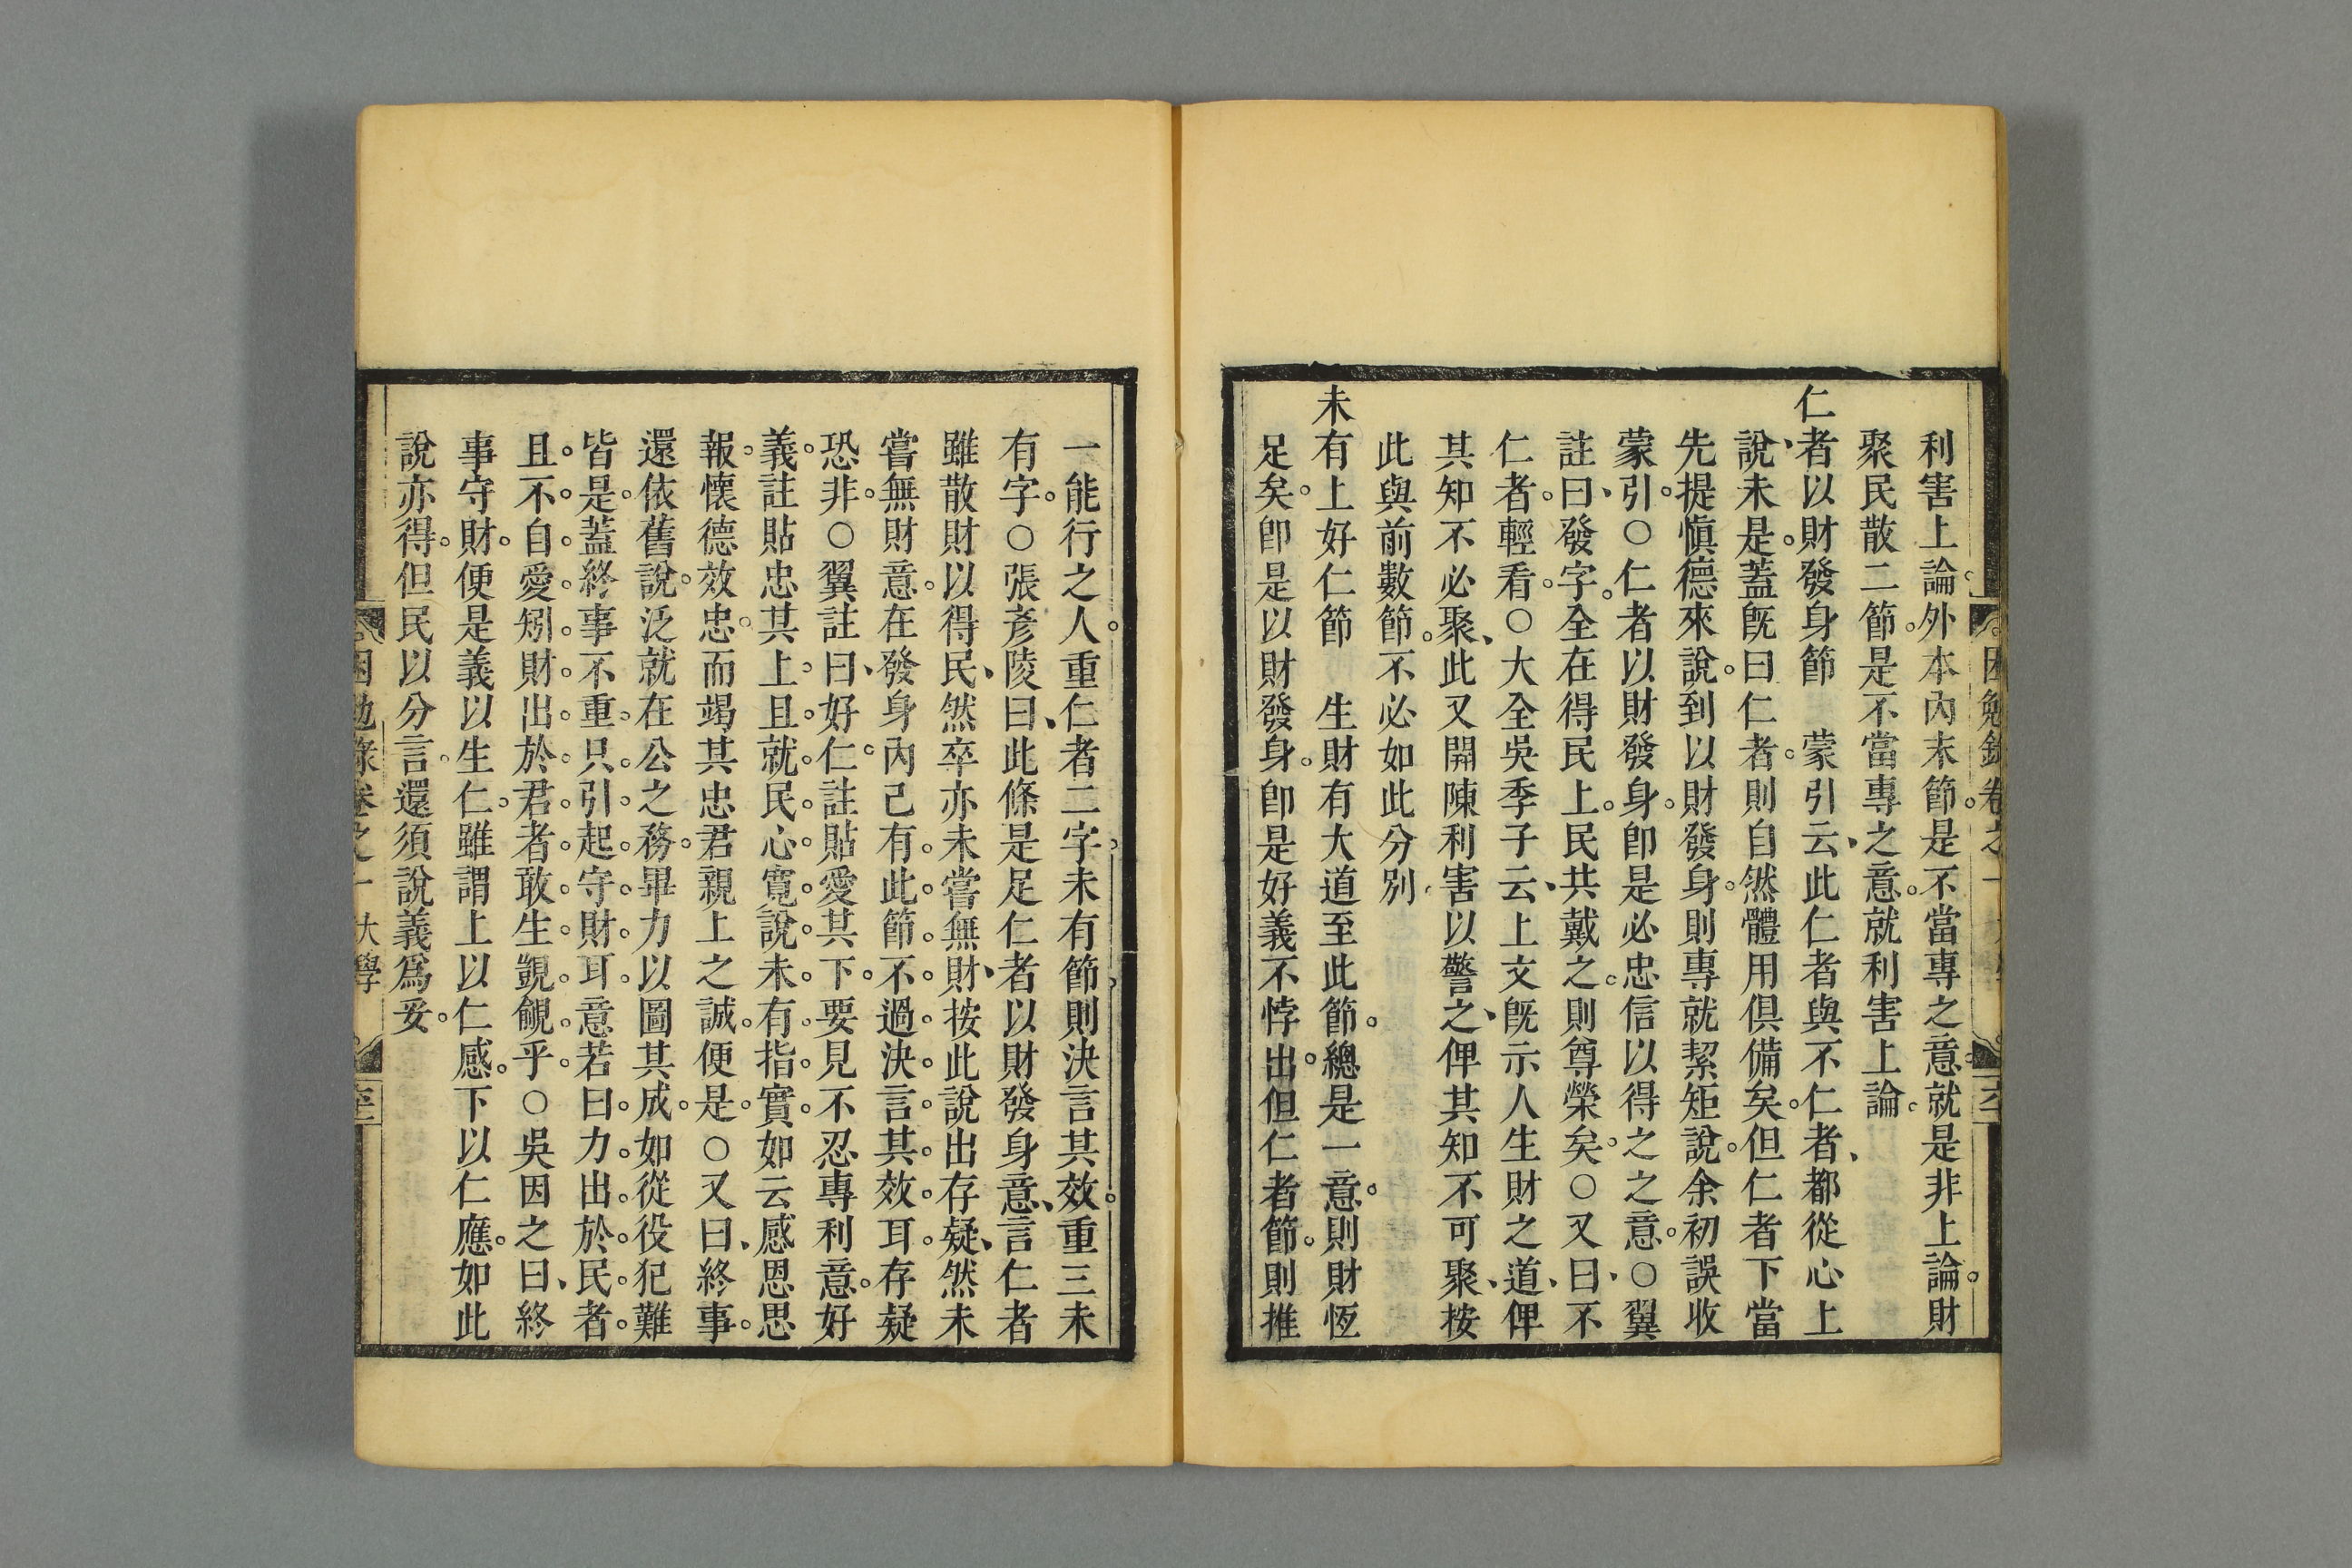 利害上論外本內末節是不當專之意就是非上論財
聚民散二節是不當專之意就利害上論
仁者以財發身節　蒙引云此仁者與不仁者都從心上
說未是蓋旣曰仁者則自然體用俱備矣但仁者下當
先提愼德來說到以財發身則專就絜矩說余初誤收
蒙引○仁者以財發身卽是必忠信以得之之意○翼
註曰發字全在得民上民共戴之則尊榮矣○又曰不
仁者輕看○大全吳季子云上文旣示人生財之道俾
其知不必聚此又開陳利害以警之俾其知不可聚按
此與前數節不必如此分別
未有上好仁節　生財有大道至此節總是一意則財恆
足矣卽是以財發身卽是好義不悖出但仁者節則推
一能行之人重仁者二字未有節則決言其效重三未
有字○張彥陵曰此條是足仁者以財發身意言仁者
雖散財以得民然卒亦未嘗無財按此說出存疑然未
嘗無財意在發身內已有此節不過決言其效耳存疑
恐非○翼註曰好仁註貼愛其下要見不忍專利意好
義註貼忠其上且就民心寬說未有指實如云感恩思
報懷德效忠而竭其忠君親上之誠便是○又曰終事
還依舊說泛就在公之務畢力以圖其成如從役犯難
皆是蓋終事不重只引起守財耳意若曰力出於民者
且不自愛矧財出於君者敢生覬覦乎○吳因之曰終
事守財便是義以生仁雖謂上以仁感下以仁應如此
說亦得但民以分言還須說義爲妥
困勉錄卷之一　大學